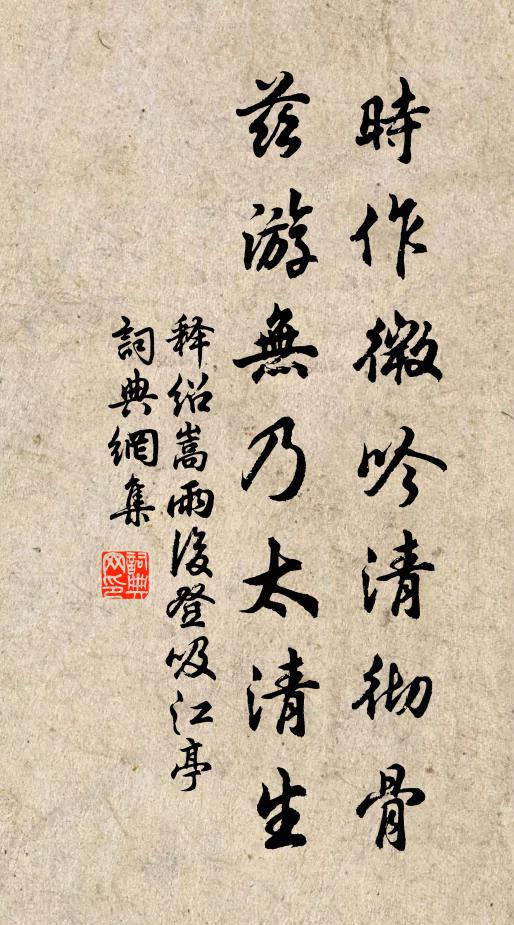 時作微吟清彻骨
兹游無乃太清生
释绍嵩雨後登吸江亭
詞典網集
詞典
网印